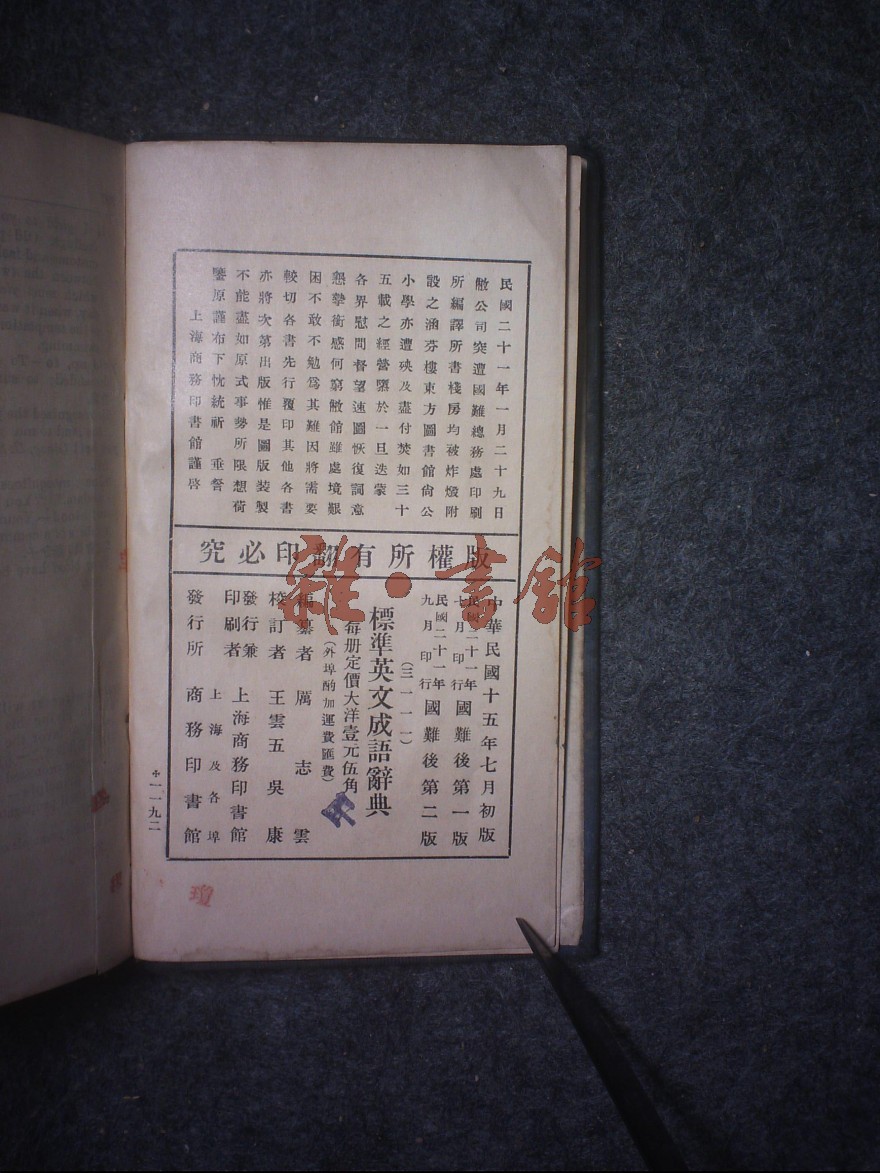 民國二十一年一月二十九日
敝公司突遭國難總務處印刷
所編譯所書棧房均被炸燬附
設之涵芬樓東方圖書館尙公
小學亦遭殃及盡付焚如三十
五載之經營隳於一旦迭蒙
各界慰問督望速圖恢復詞意
懇摯銜感何窮敝館雖處境艱
困不敢不勉爲其難因將需要
較切各書先行覆印其他各書
亦將次第出版惟是圖版裝製
不能盡如原式事勢所限想荷
鑒原謹布下忱統祈 垂詧
上海商務印書館謹啓
版權所有翻印必究
中華民國十五年七月初版
民國二十一年七月印行國難後第一版
民國二十一年九月印行國難後第二版
(三一一一)
標準英文成語辭典
每册定價大洋壹元伍角
(外埠酌加運費匯費)
編纂者 厲志雲
校訂者 王雲五 吳康
發行兼印刷者 上海商務印書館
發行所 上海及各埠 商務印書館
一一九二
雜·書館
瓊